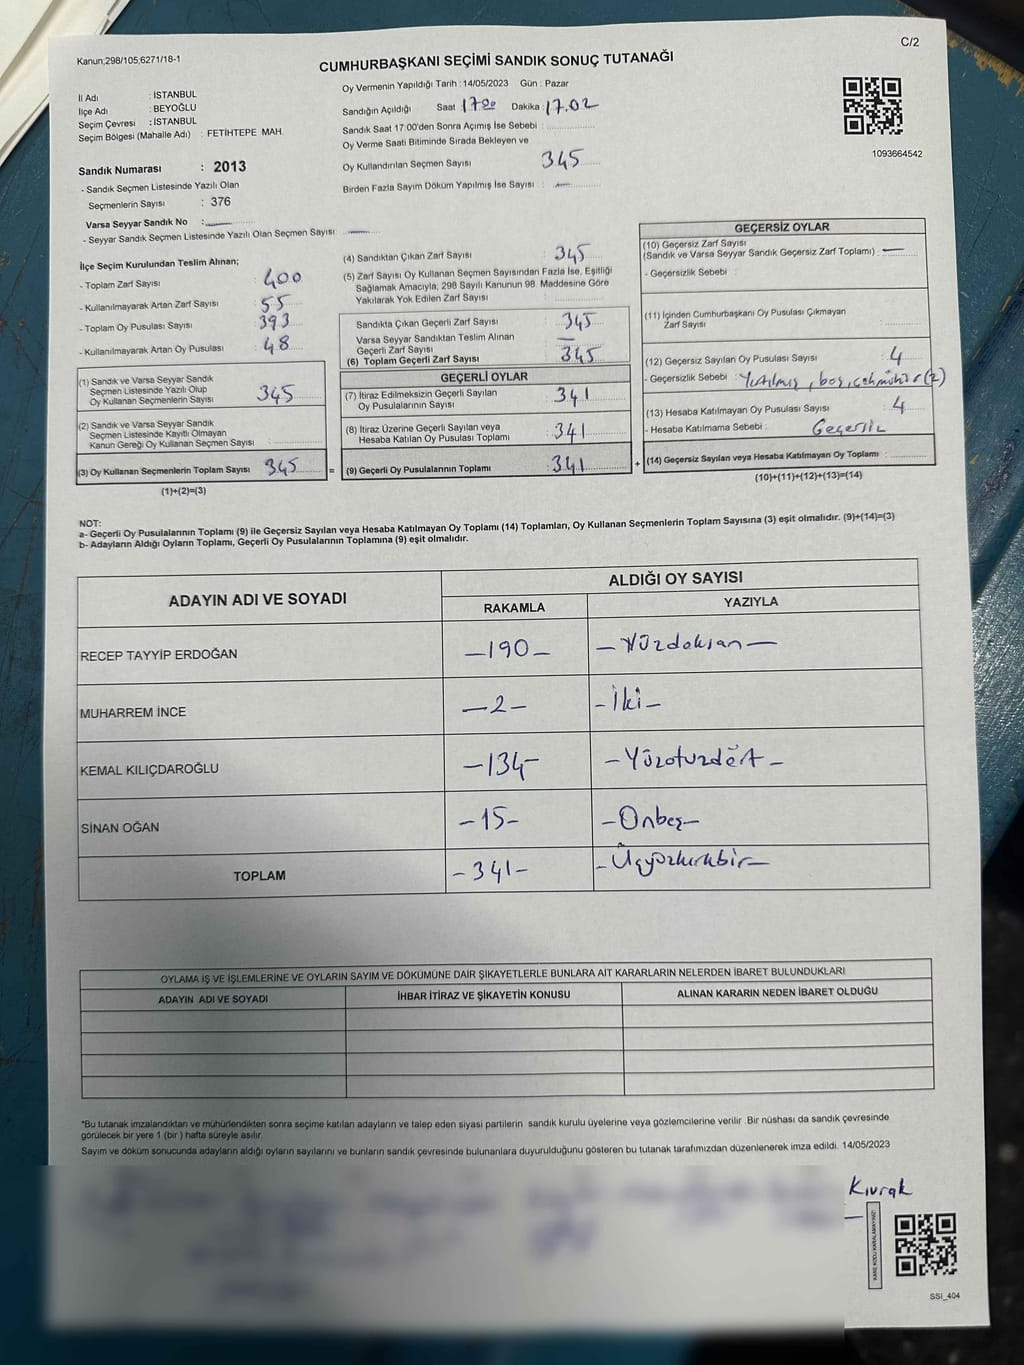 Kanun,298/105,6271/18-1
C/2
CUMHURBAŞKANI SEÇİMİ SANDIK SONUÇ TUTANAĞI
İl Adı : İSTANBUL
İlçe Adı : BEYOĞLU
Seçim Çevresi : İSTANBUL
Seçim Bölgesi (Mahalle Adı) : FETİHTEPE MAH.
Sandık Numarası : 2013
- Sandık Seçmen Listesinde Yazılı Olan
Seçmenlerin Sayısı : 376
Varsa Seyyar Sandık No :
- Seyyar Sandık Seçmen Listesinde Yazılı Olan Seçmen Sayısı
Oy Vermenin Yapıldığı Tarih : 14/05/2023 Gün : Pazar
Sandığın Açıldığı Saat 17.00 Dakika : 17.02
Sandık Saat 17.00'den Sonra Açımış İse Sebebi :
Oy Verme Saati Bitiminde Sırada Bekleyen ve
Oy Kullandırılan Seçmen Sayısı 345
Birden Fazla Sayım Döküm Yapılmış İse Sayısı : —
1093664542
İlçe Seçim Kurulundan Teslim Alınan;
- Toplam Zarf Sayısı : 400
- Kullanılmayarak Artan Zarf Sayısı : 55
- Toplam Oy Pusulası Sayısı : 393
- Kullanılmayarak Artan Oy Pusulası : 48
(1) Sandık ve Varsa Seyyar Sandık
Seçmen Listesinde Yazılı Olup
Oy Kullanan Seçmenlerin Sayısı : 345
(2) Sandık ve Varsa Seyyar Sandık
Seçmen Listesinde Kayıtlı Olmayan
Kanun Gereği Oy Kullanan Seçmen Sayısı :
(3) Oy Kullanan Seçmenlerin Toplam Sayısı : 345 =
(1)+(2)=(3)
(4) Sandıktan Çıkan Zarf Sayısı : 345
(5) Zarf Sayısı Oy Kullanan Seçmen Sayısından Fazla İse, Eşitliği
Sağlamak Amacıyla, 298 Sayılı Kanunun 98. Maddesine Göre
Yakılarak Yok Edilen Zarf Sayısı :
Sandıkta Çıkan Geçerli Zarf Sayısı : 345
Varsa Seyyar Sandıktan Teslim Alınan
Geçerli Zarf Sayısı : —
(6) Toplam Geçerli Zarf Sayısı : 345
GEÇERLİ OYLAR
(7) İtiraz Edilmeksizin Geçerli Sayılan
Oy Pusulalarının Sayısı : 341
(8) İtiraz Üzerine Geçerli Sayılan veya
Hesaba Katılan Oy Pusulası Toplamı : 341
(9) Geçerli Oy Pusulalarının Toplamı : 341 +
GEÇERSİZ OYLAR
(10) Geçersiz Zarf Sayısı
(Sandık ve Varsa Seyyar Sandık Geçersiz Zarf Toplamı) : —
- Geçersizlik Sebebi :
(11) İçinden Cumhurbaşkanı Oy Pusulası Çıkmayan
Zarf Sayısı :
(12) Geçersiz Sayılan Oy Pusulası Sayısı : 4
- Geçersizlik Sebebi : Yırtılmış, boş, (2)
(13) Hesaba Katılmayan Oy Pusulası Sayısı : 4
- Hesaba Katılmama Sebebi : Geçersiz
(14) Geçersiz Sayılan veya Hesaba Katılmayan Oy Toplamı :
(10)+(11)+(12)+(13)=(14)
NOT:
a- Geçerli Oy Pusulalarının Toplamı (9) ile Geçersiz Sayılan veya Hesaba Katılmayan Oy Toplamı (14) Toplamları, Oy Kullanan Seçmenlerin Toplam Sayısına (3) eşit olmalıdır. (9)+(14)=(3)
b- Adayların Aldığı Oyların Toplamı, Geçerli Oy Pusulalarının Toplamına (9) eşit olmalıdır.
ADAYIN ADI VE SOYADI
ALDIĞI OY SAYISI
RAKAMLA YAZIYLA
RECEP TAYYİP ERDOĞAN —190— —Yüzdoksan—
MUHARREM İNCE —2— —İki—
KEMAL KILIÇDAROĞLU —134— —Yüzotuzdört—
SİNAN OĞAN —15— —Onbeş—
TOPLAM —341— —Üçyüzkırkbir—
OYLAMA İŞ VE İŞLEMLERİNE VE OYLARIN SAYIM VE DÖKÜMÜNE DAİR ŞİKAYETLERLE BUNLARA AİT KARARLARIN NELERDEN İBARET BULUNDUKLARI
ADAYIN ADI VE SOYADI İHBAR İTİRAZ VE ŞİKAYETİN KONUSU ALINAN KARARIN NEDEN İBARET OLDUĞU
*Bu tutanak imzalandıktan ve mühürlendikten sonra seçime katılan adayların ve talep eden siyasi partilerin sandık kurulu üyelerine veya gözlemcilerine verilir. Bir nüshası da sandık çevresinde
görülecek bir yere 1 (bir ) hafta süreyle asılır.
Sayım ve döküm sonucunda adayların aldığı oyların sayılarını ve bunların sandık çevresinde bulunanlara duyurulduğunu gösteren bu tutanak tarafımızdan düzenlenerek imza edildi. 14/05/2023
Kıvrak
KARE KODU KARALAMAYINIZ!
SSI_404